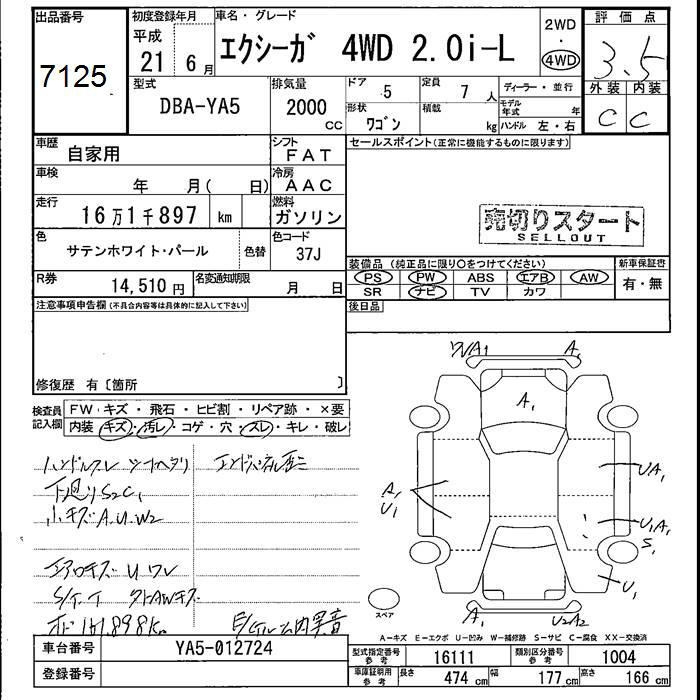 出品番号
7125
初度登録年月
平成
21 6月
車名・グレード
エクシーガ 4WD 2.0i-L
2WD
・
4WD
評価点
3.5
外装 内装
C C
型式
DBA-YA5
排気量
2000
CC
ドア
5
定員
7人
形状
ワゴン
積載
kg
ディーラー・並行
モデル年式 年
ハンドル 左・右
車歴
自家用
シフト
FAT
セールスポイント(正常に機能するものに限ります)
車検
年 月( 日)
冷房
AAC
走行
16万1千897 km
燃料
ガソリン
売切りスタート
SELLOUT
色
サテンホワイト・パール
色替
色コード
37J
装備品 (純正品に限り○をつけてください)
PS PW ABS エアB AW
SR ナビ TV カワ
新車保証書
有・無
R券
14,510円
名変通知期限
月 日
後日品
注意事項申告欄(不具合内容等は具体的に記入して下さい)
修復歴 有〔箇所 〕
検査員記入欄
FW・キズ・飛石・ヒビ割・リペア跡・×要
内装 キズ・汚レ・コゲ・穴・スレ・キレ・破レ
ハンドルスレ シートヘタリ
下廻りS2C1
小キズA.U.W2
エアロキズ
161,898km
A1
A1
A1
U1
UA1
U1A1
S1
U1
A1
U2A2
スペア
A-キズ E-エクボ U-凹み W-補修跡 S-サビ C-腐食 XX-交換済
車台番号
YA5-012724
登録番号
型式指定番号 参考
16111
類別区分番号 参考
1004
車庫証明用 参考
長さ 474cm 幅 177cm 高さ 166cm